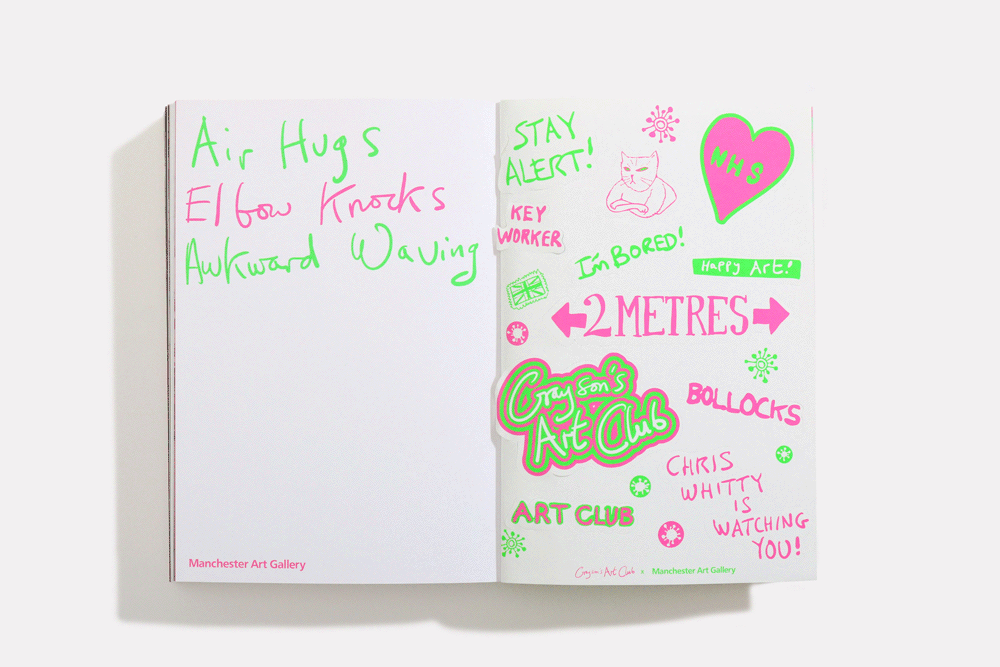 Air Hugs
Elbow Knocks
Awkward Waving
Manchester Art Gallery
STAY
ALERT!
NHS
KEY
WORKER
I'm BORED!
Happy Art!
2 METRES
Grayson's
Art Club
BOLLOCKS
CHRIS
WHITTY
IS
WATCHING
YOU!
ART CLUB
Grayson's Art Club x Manchester Art Gallery